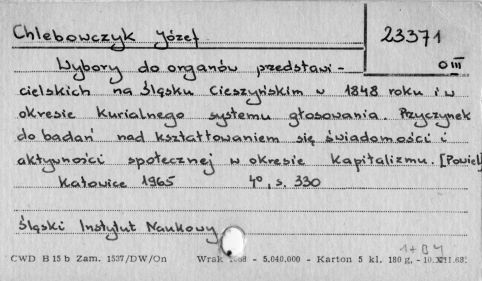 Chlebowczyk Józef
23371
O III
Wybory do organów przedstawi-
cielskich na Śląsku Cieszyńskim w 1848 roku i w
okresie kurialnego systemu głosowania. Przyczynek
do badań nad kształtowaniem się świadomości i
aktywności społecznej w okresie kapitalizmu. [Powiel]
Katowice 1965 4°, s. 330
Śląski Instytut Naukowy
1+BY
CWD B 15 b Zam. 1537/DW/On Wrak 1968 - 5.040.000 - Karton 5 kl. 180 g. - 10.XII.68.